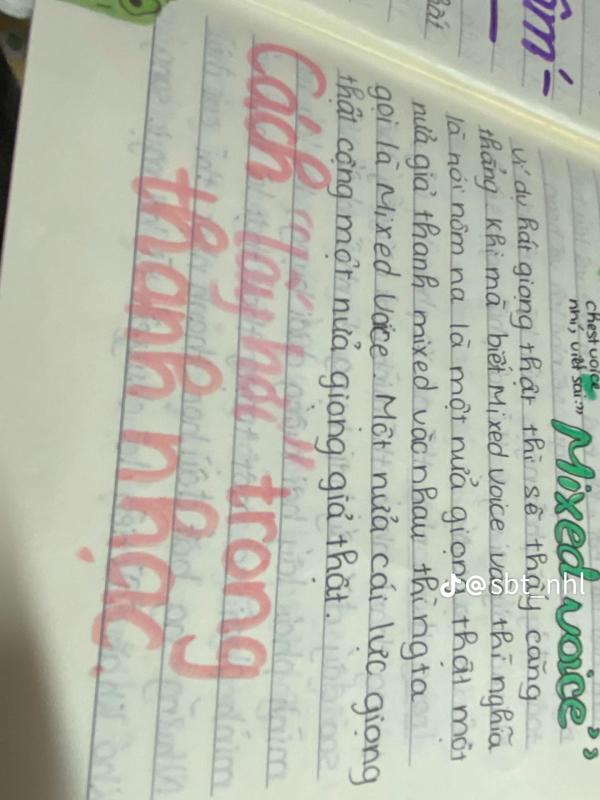 chest voice
nhỉ, viết sai:))
Mixed voice"
ví dụ hát giọng thật thì sẽ thấy căng
thẳng khi mà biết Mixed voice vào thì nghĩa
là nói nôm na là một nửa giọng thật một
nửa giả thanh mixed vào nhau thì ngta
gọi là Mixed voice. Một nửa cái lực giọng
thật cộng một nửa giọng giả thật.
Cách "lấy hơi" trong
thanh nhạc.
@sbt_nhl